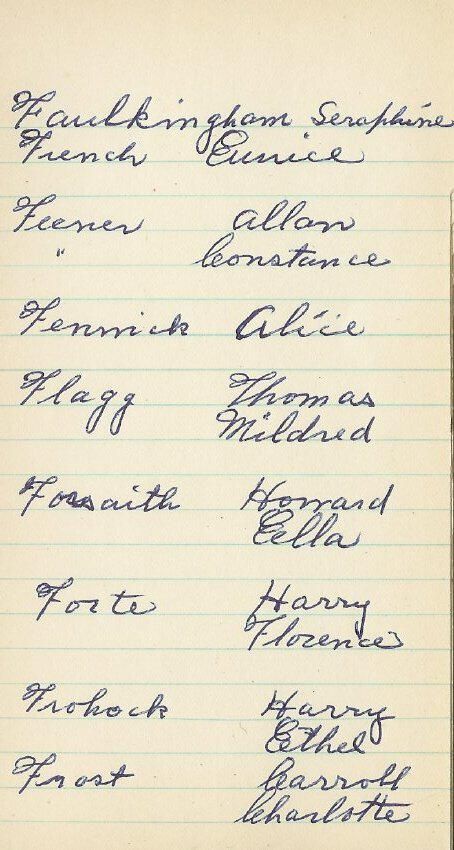 Faulkingham Seraphine
French Eunice
Feener Allan
" Constance
Fenwick Alice
Flagg Thomas
Mildred
Forsaith Howard
Eella
Forte Harry
Florence
Frohock Harry
Ethel
Frost Carroll
Charlotte